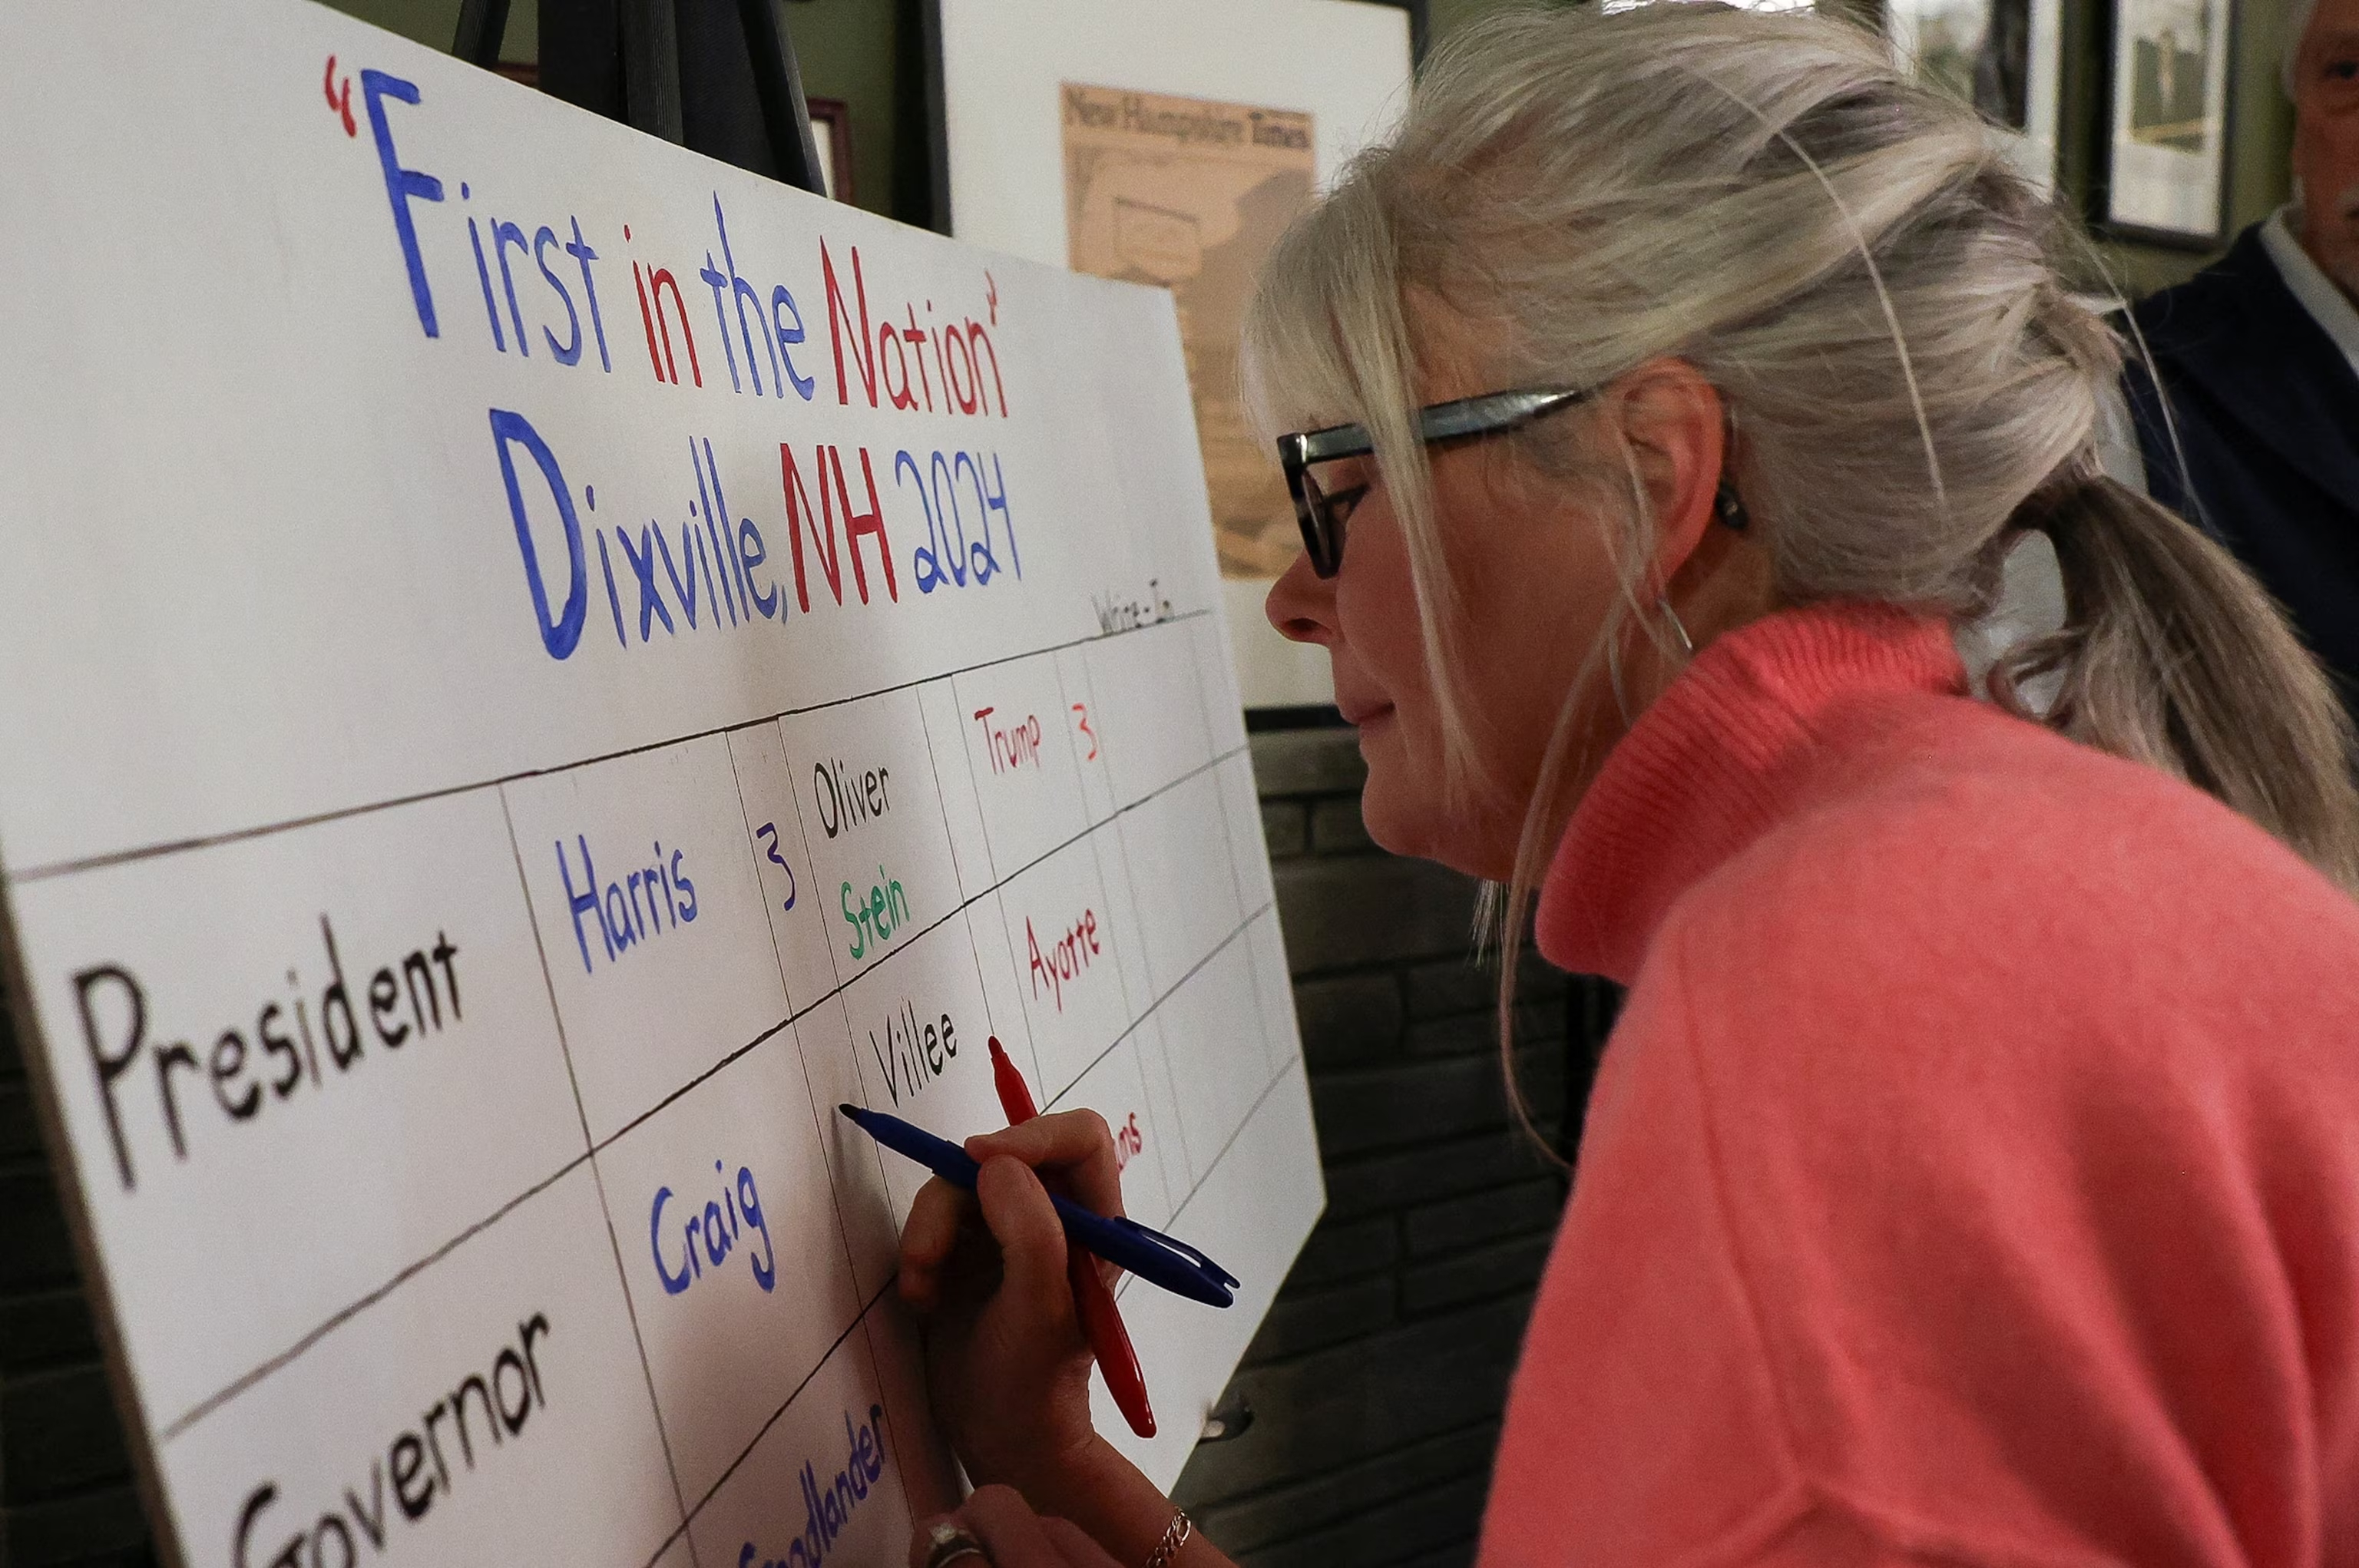 New Hampshire Times
"First in the Nation"
Dixville, NH 2024
Write-In
President Harris 3 Oliver Trump 3
Stein
Governor Craig Villee Ayotte
Goodlander